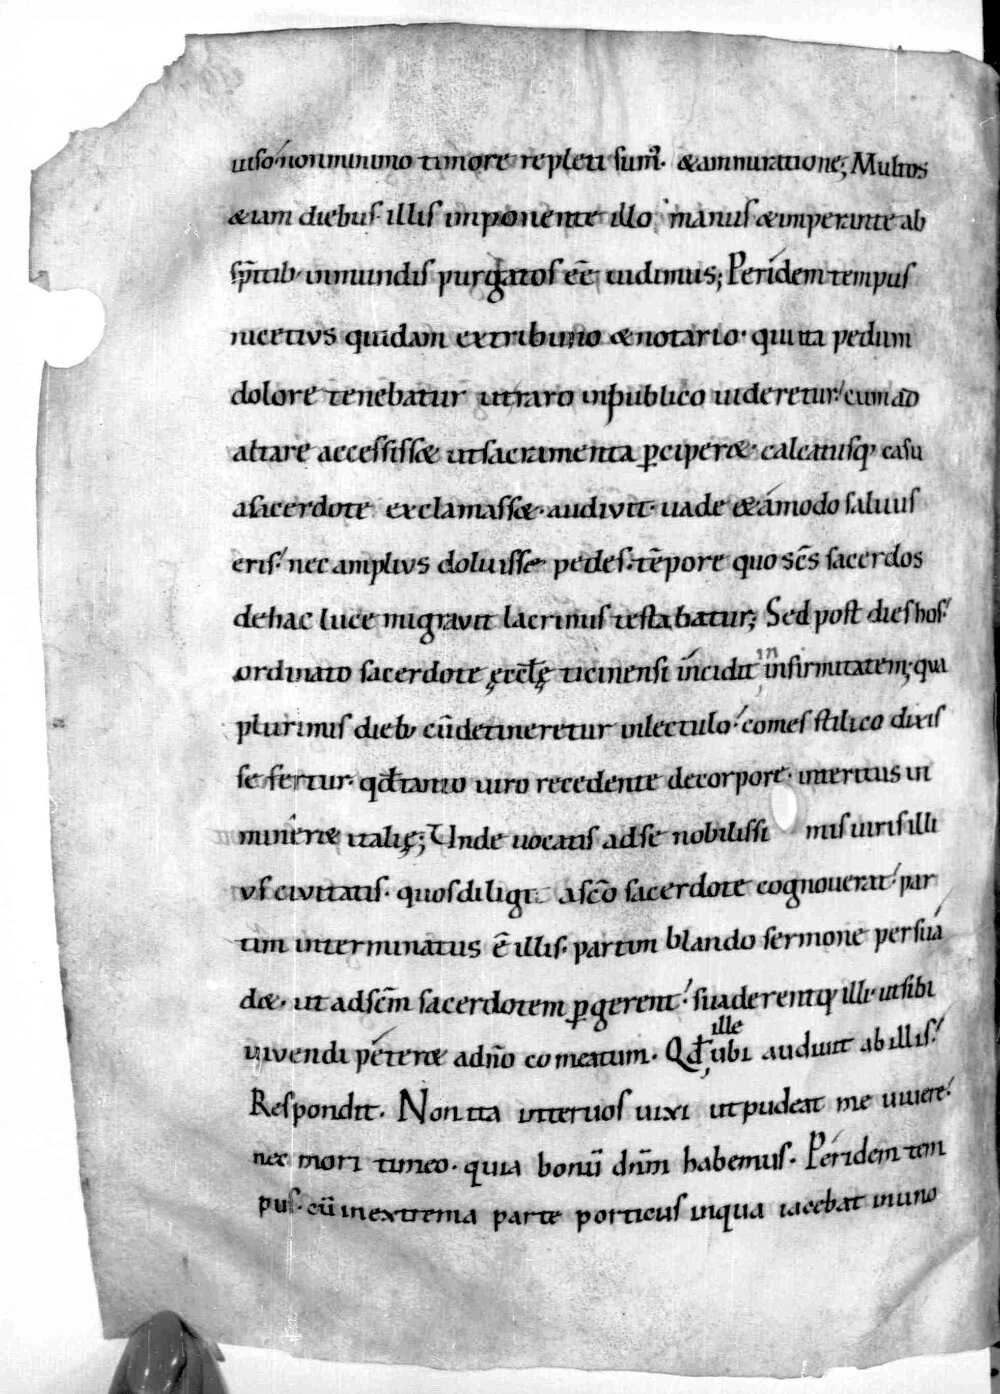 uiso· non minimo timore repleti sum̃· &ammiratione; Multos
&iam diebus· illis imponente illo· manus &imperante ab
sp̃ritib; inmundis purgatos eē uidimus; Per idem tempus
nicetius quidam extribuno &notario· qui ita pedum
dolore tenebatur ut raro inpublico uideretur· cum ad
altare accessiss& ut sacramenta p̱ciper&· calcatusq; casu
asacerdote exclamass&· audiuit· uade &ámodo saluus
eris· nec amplius doluisse pedes· tēpore quo sc̄s sacerdos
dehac luce migrauit lacrimis testabatur; Sed post dies hos·
ordinato sacerdote ęccl̄ę ticinensi íncidit in infirmitatem; qua
plurimis dieb; cū detineretur inlectulo· comes stilico dixis
se fertur· qd̄ tanto uiro recedente decorpore· interitus in
miner& italię; Unde uocatis adse nobilissi mis uiris illi
us ciuitatis· quos diligi asc̄o sacerdote cognouerat· par
tim interminatus ē illis· partim blando sermone persuá
d&· ut adsc̄m sacerdotem p̱gerent· suaderentq; illi· ut sibi
uiuendi péter& adn̄o comeatum· Qd̄ ille ubi audiuit ab illis·
Respondit· Non ita inter uos uixi ut pudeat me uiuere·
nec mori timeo· quia bonū dn̄m habemus· Per idem tem
pus· cū inextrema parte porticus inqua iacebat inuno